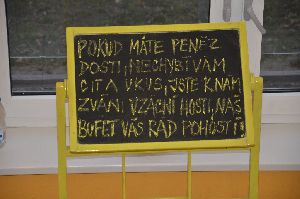 POKUD MÁTE PENĚZ
DOSTI, NECHYBÍ VÁM
CIT A VKUS, JSTE K NÁM
ZVÁNI VZÁCNÍ HOSTI, NÁŠ
BUFET VÁS RÁD POHOSTÍ